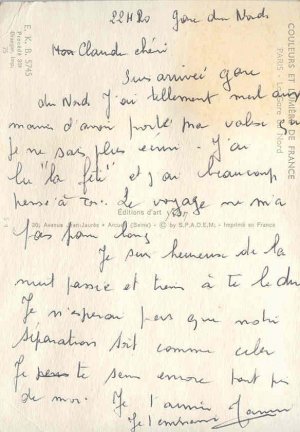 22H20 Gare du Nord
Mon Claude chéri
Suis arrivée gare
du Nord J'ai tellement mal aux
mains d'avoir porté ma valise que
Je ne sais plus écrire. J'ai
lu "la fête" et j'ai beaucoup
pensé à toi. Le voyage ne m'a
pas paru long
Je suis heureuse de la
nuit passée et tiens à te le dire
Je n'espérais pas que notre
séparation soit comme celà
Je te sens encore tout près
de moi. Je t'aime
Je t'embrasse
COULEURS ET LUMIÈRE DE FRANCE
PARIS - La Gare du Nord
E. K. B. 5745
Éditions d'art
20, Avenue Jean-Jaurès - Arcueil (Seine) - © by S.P.A.D.E.M. - Imprimé en France